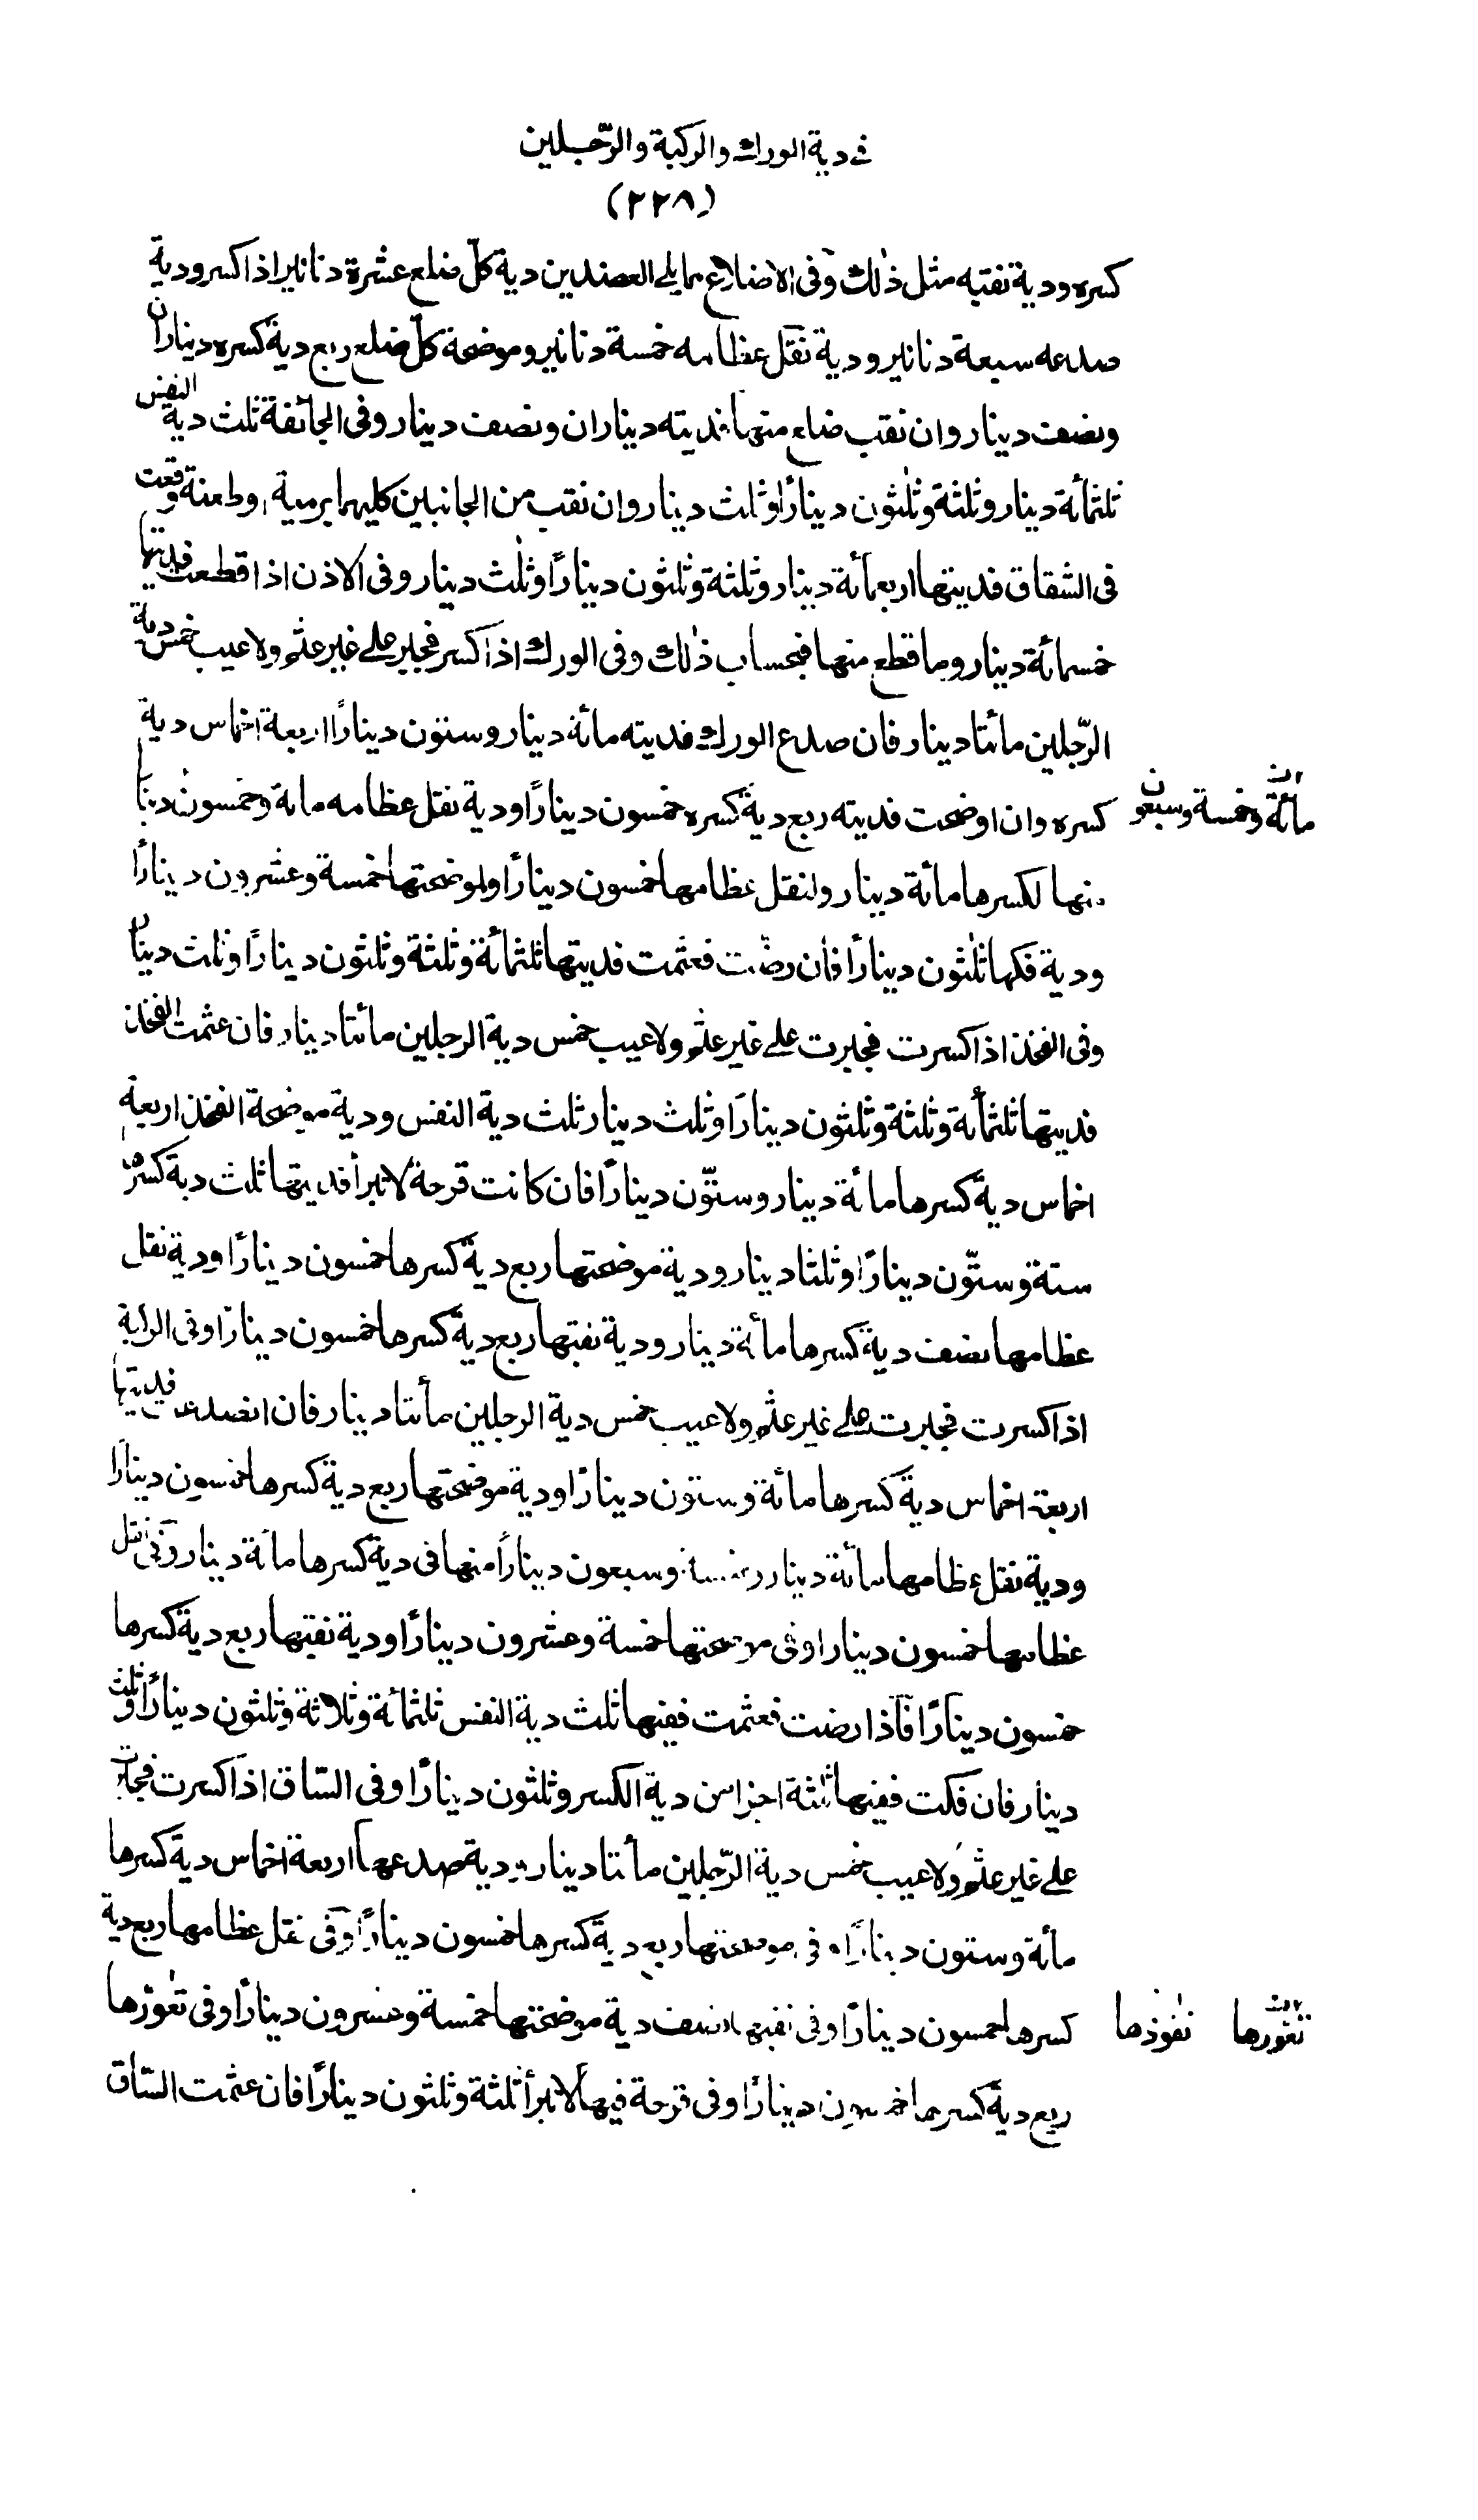 في دية الورك والركبة والرّجلين
(٢٢٨)
كسره ودية نقبه مثل ذلك وفى الاضلاع مما يلي العضدين دية كلّ ضلع عشرة دنانير اذا كسر ودية
صدعه سبعة دنانير ودية نقل عظامه خمسة دنانير وموضحة كلّ ضلع ربع دية كسره ديناران
ونصف دينار وان نقب ضلع منها فديته ديناران ونصف دينار وفى الجائفة ثلث دية النفس
ثلثمائة دينار وثلثة وثلثون دينارًا وثلث دينار وان نقب من الجانبين كليهما برمية او طعنة وقعت
فى الشقاق فديتها اربعمائة دينار وثلثة وثلثون دينارًا وثلث دينار وفى الاذن اذا قطعت فديتها
خمسمائة دينار وما قطع منها فبحساب ذلك وفى الورك اذا كسر فجبر على غير عثم ولا عيب خمس دية
الرّجلين مأتا دينار فان صدع الورك فديته مائة دينار وستون دينارًا اربعة اخماس دية
كسره وان اوضحت فديته ربع دية كسره خمسون دينارًا ودية نقل عظامه مائة وخمسون دينا
مائة وخمسة وسبعون
منها لكسرها مائة دينار ولنقل عظامها خمسون دينارًا ولموضحتها خمسة وعشرون دينارًا
ودية فكها ثلثون دينارًا فان رضت فعثمت فديتها ثلثمائة وثلثة وثلثون دينارًا وثلث دينار
وفى الفخذ اذا كسرت فجبرت على غير عثم ولا عيب خمس دية الرجلين مأتا دينار فان عثمت الفخذ
فديتها ثلثمائة وثلثة وثلثون دينارًا وثلث دينار ثلث دية النفس ودية موضحة الفخذ اربعة
اخماس دية كسرها مائة دينار وستّون دينارًا فان كانت قرحة لا تبرأ فديتها ثلث دية كسرها
ستة وستّون دينارًا وثلثا دينار ودية موضحتها ربع دية كسرها خمسون دينارًا ودية نقل
عظامها نصف دية كسرها مائة دينار ودية نقبها ربع دية كسرها خمسون دينارًا وفى الركبة
اذا كسرت فجبرت على غير عثم ولا عيب خمس دية الرجلين مأتا دينار فان انصدعت فديتها
اربعة اخماس دية كسرها مائة وستون دينارًا ودية موضحتها ربع دية كسرها خمسون دينارًا
ودية نقل عظامها مائة دينار وخمسة وسبعون دينارًا منها فى دية كسرها مائة دينار وفى نقل
عظامها خمسون دينارا وفى موضحتها خمسة وعشرون دينارًا ودية نقبها ربع دية كسرها
خمسون دينارًا فاذا رضت فعثمت ففيها ثلث دية النفس ثلثمائة وثلاثة وثلثون دينارًا وثلث
دينار فان فكت ففيها ثلثة اجزا من دية الكسر وثلثون دينارًا وفى السّاق اذا كسرت فجبرت
على غير عثم ولا عيب خمس دية الرّجلين مأتا دينار ودية صدعها اربعة اخماس دية كسرها
مائة وستون دينارًا وفى موضحتها ربع دية كسرها خمسون دينارًا وفى نقل عظامها ربع دية
كسرها خمسون دينارًا وفى نقبها نصف دية موضحتها خمسة وعشرون دينارًا وفى تعوّرها
نفوذها
تغورها
ربع دية كسرها خمسون دينارًا وفى قرحة فيها لا تبرأ ثلثة وثلثون دينارًا فان عثمت السّاق